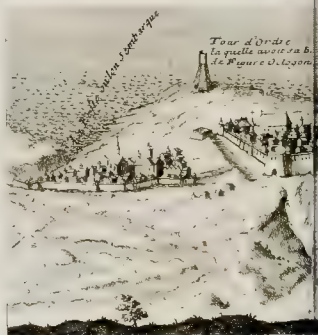 Tour d'Ordre
la quelle avoit sa b
de Figure Octogon
qu'on s'embarque